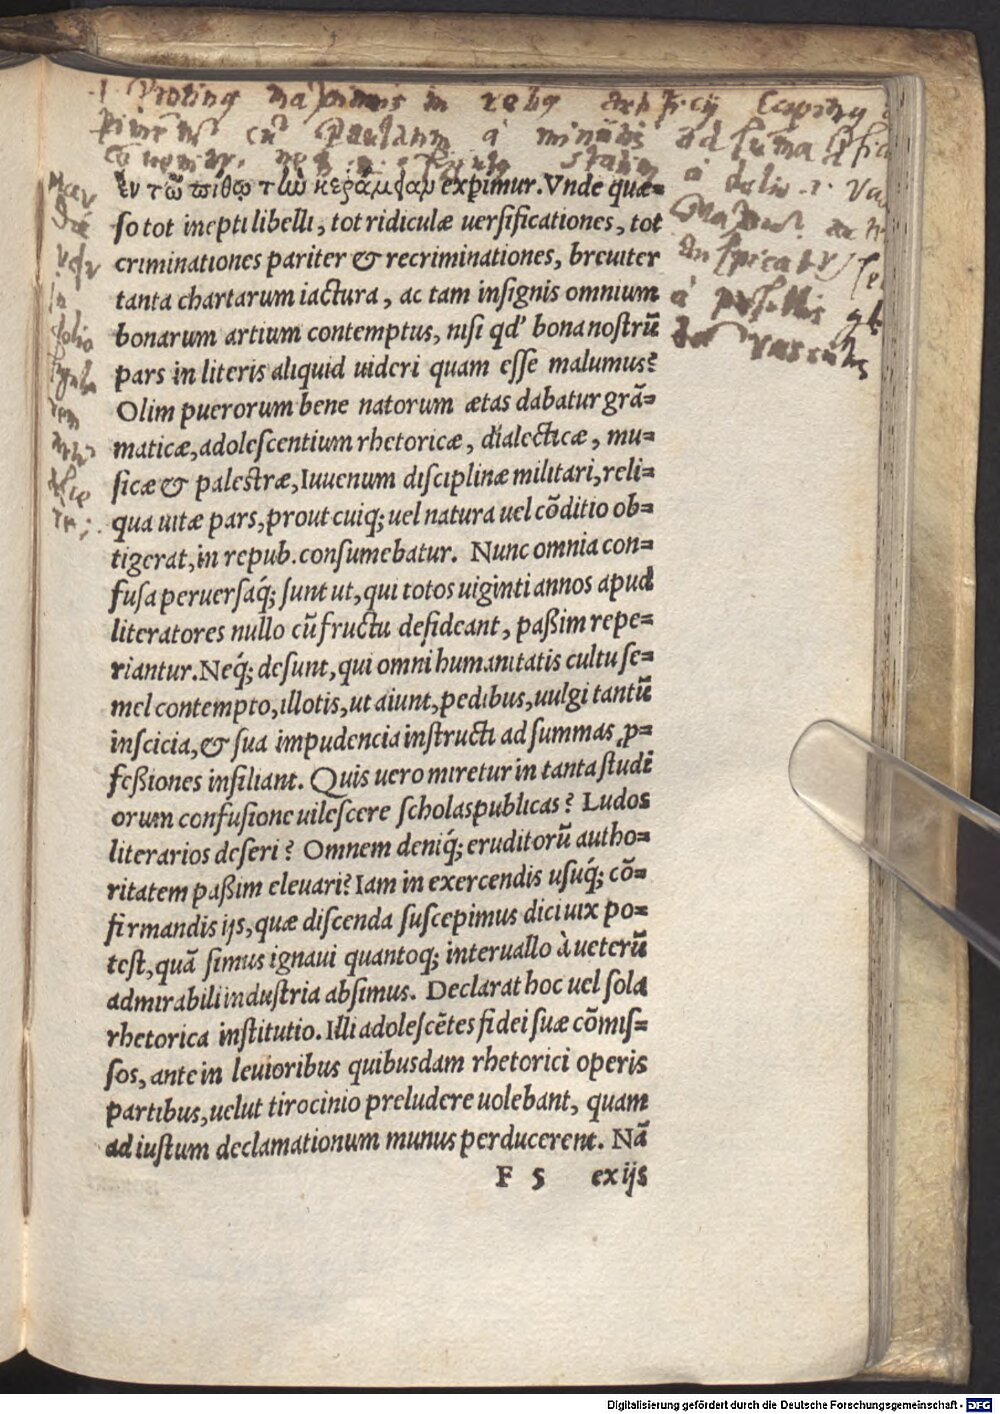 ἐν τῶ πίθῳ τὼ κεράμφαν expimur. Vnde quæ=
so tot inepti libelli, tot ridiculæ uersificationes, tot
criminationes pariter & recriminationes, breuiter
tanta chartarum iactura, ac tam insignis omnium
bonarum artium contemptus, nisi qd' bona nostrū
pars in literis aliquid uideri quam esse malumus?
Olim puerorum bene natorum ætas dabatur grā=
maticæ, adolescentium rhetoricæ, dialecticæ, mu=
sicæ & palestræ, Iuuenum disciplinæ militari, reli=
qua uitæ pars, prout cuiq; uel natura uel cōditio ob=
tigerat, in repub. consumebatur. Nunc omnia con=
fusa peruersaq́; sunt ut, qui totos uiginti annos apud
literatores nullo cū fructu desideant, paßim repe=
riantur. Neq́; desunt, qui omni humanitatis cultu se=
mel contempto, illotis, ut aiunt, pedibus, uulgi tantū
inscicia, & sua impudencia instructi ad summas ꝓ=
feßiones insiliant. Quis uero miretur in tanta studi
orum confusione uilescere scholas publicas? Ludos
literarios deseri? Omnem deniq́; eruditorū autho=
ritatem paßim eleuari? Iam in exercendis usuq́; cō=
firmandis ijs, quæ discenda suscepimus dici uix po=
test, quā simus ignaui quantoq; interuallo à ueterū
admirabili industria absimus. Declarat hoc uel sola
rhetorica institutio. Illi adolescētes fidei suæ cōmis=
sos, ante in leuioribus quibusdam rhetorici operis
partibus, uelut tirocinio preludere uolebant, quam
ad iustum declamationum munus perducerent. Nā
F 5 ex ijs
Digitalisierung gefördert durch die Deutsche Forschungsgemeinschaft - DFG